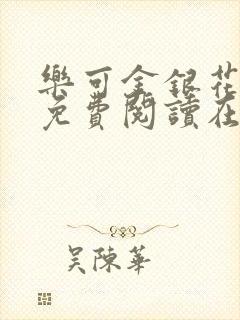 樂可金銀花
免費閱讀在
吴陳華